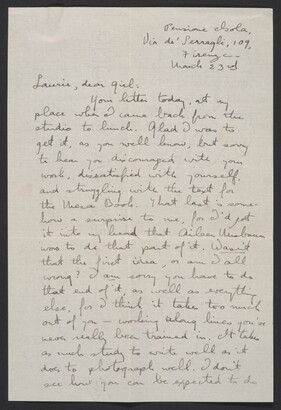 Pensione Isola,
Via de' Serragli, 109,
Firenze
March 23rd
Laurie, dear girl:
Your letter today, at my
place when I came back from the
studio to lunch. Glad I was to
get it, as you well know, but sorry
to hear you discouraged with your
work, dissatisfied with yourself,
and struggling with the text for
the Mesa Book. That last is some-
how a surprise to me, for I'd got
it into my head that Aileen Nusbaum
was to do that part of it. Wasn't
that the first idea, or am I all
wrong? I am sorry you have to do
that end of it, as well as everything
else, for I think it takes too much
out of you – working along lines you've
never really been trained in. It takes
as much study to write well as it
does to photograph well. I don't
see how you can be expected to do